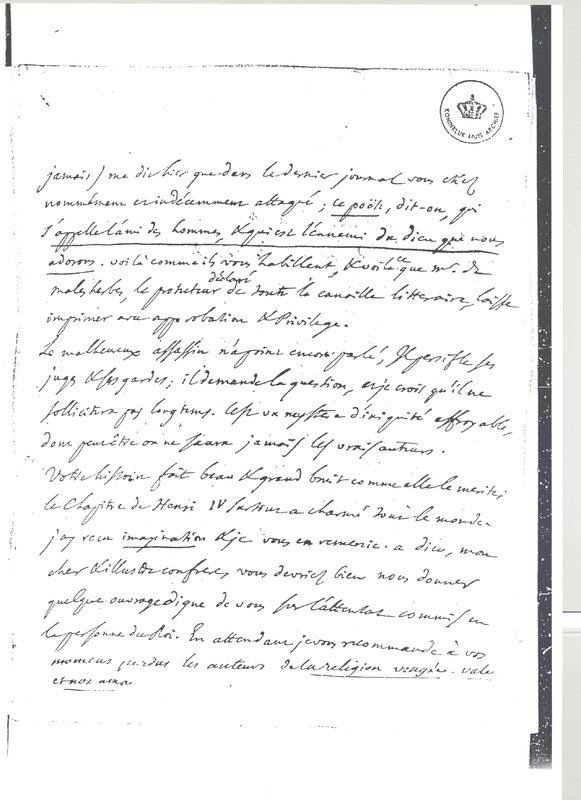 KONINKLIJK HUIS ARCHIEF
jamais) me dit hier que dans le dernier journal vous étiez
nommément et indécemment attaqué; ce poëte, dit-on, qui
s'appelle l'ami des hommes, & qui est l'ennemi du dieu que nous
adorons. voilà comme ils vous habillent, & voilà ce que mr. de
malesherbes, le protecteur déclaré de toute la canaille litteraire, laisse
imprimer avec approbation & Privilege.
Le malheureux assassin n'a point encore parlé, Il persifle ses
juges & ses gardes; il demande la question, et je crois qu'il ne
sollicitera pas longtems. C'est un mystere d'iniquité affroyable,
dont peut être on ne saura jamais les vrais auteurs.
Votre histoire fait beau & grand bruit comme elle le merite;
le Chapitre de Henri IV surtout a charmé tout le monde.
j'ay recu imagination & je vous en remercie. a dieu, mon
cher & illustre confrere, vous devriez bien nous donner
quelque ouvrage digne de vous sur l'attentat commis en
la personne du Roi. En attendant je vous recommande à vos
momens perdus les auteurs de la religion vengée. vale
et nos ama